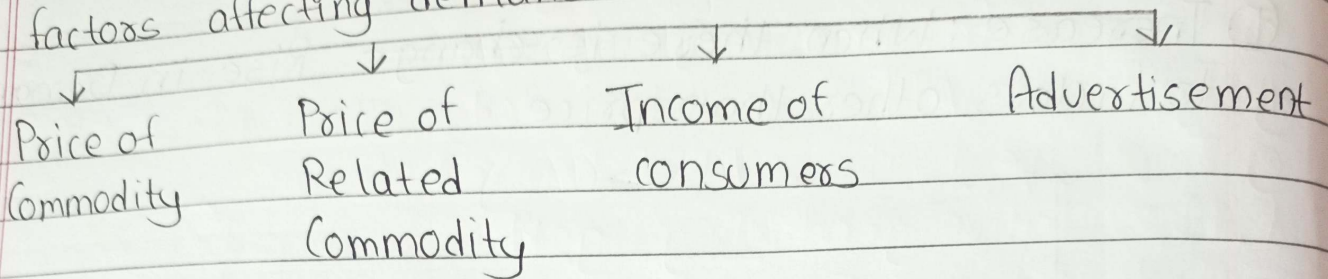 factors affecting
Price of
Commodity
Price of
Related
Commodity
Income of
consumers
Advertisement